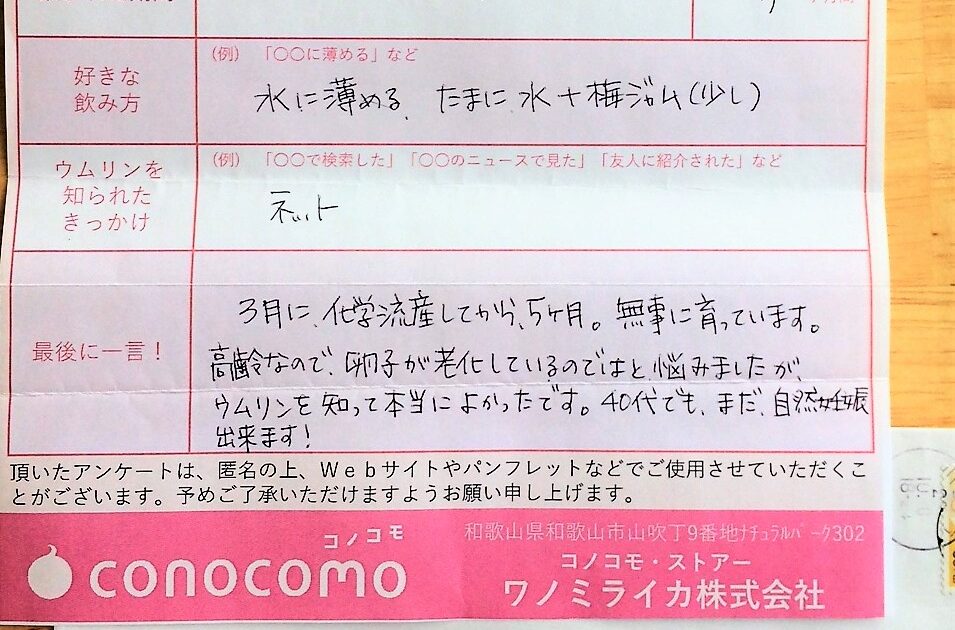 好きな
飲み方
（例）「〇〇に薄める」など
水に薄める、たまに水＋梅ジャム(少し)
ウムリンを
知られた
きっかけ
（例）「〇〇で検索した」「〇〇のニュースで見た」「友人に紹介された」など
ネット
最後に一言！
3月に、化学流産してから、5ヶ月。無事に育っています。
高齢なので、卵子が老化しているのではと悩みましたが、
ウムリンを知って本当によかったです。40代でも、まだ、自然妊娠
出来ます！
頂いたアンケートは、匿名の上、Ｗｅｂサイトやパンフレットなどでご使用させていただくこ
とがございます。予めご了承いただけますようお願い申し上げます。
コノコモ
conocomo
和歌山県和歌山市山吹丁9番地ﾅﾁｭﾗﾙﾊﾟｰｸ302
コノコモ・ストアー
ワノミライカ株式会社